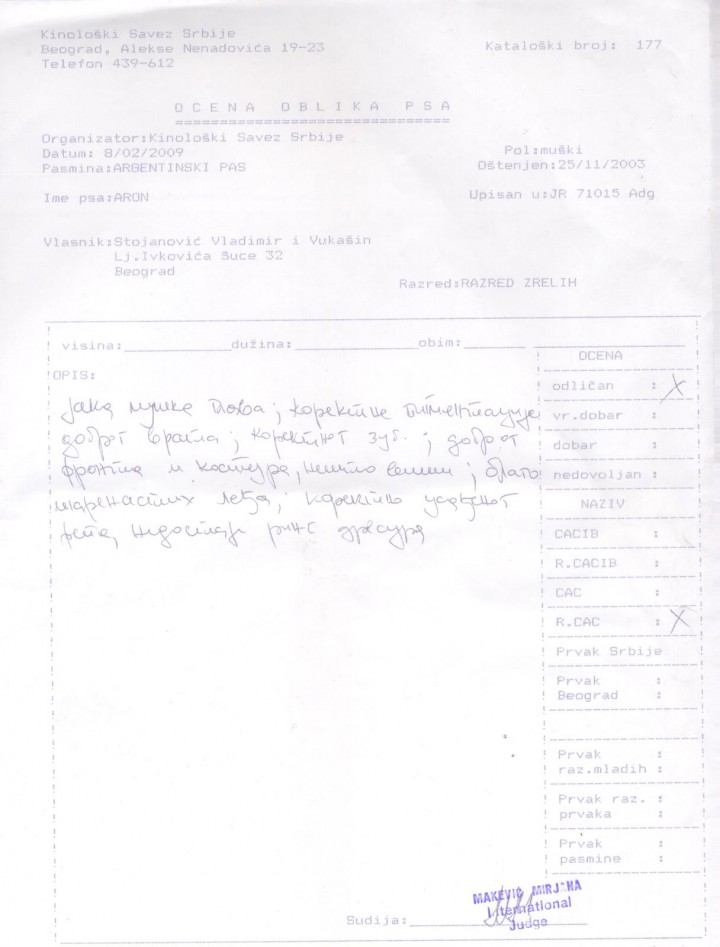 Kinološki Savez Srbije
Beograd, Alekse Nenadovića 19-23
Telefon 439-612
Kataloški broj: 177
O C E N A O B L I K A P S A
==============================
Organizator:Kinološki Savez Srbije
Datum: 8/02/2009
Pol:muški
Pasmina:ARGENTINSKI PAS
Oštenjen:25/11/2003
Ime psa:ARON
Upisan u:JR 71015 Adg
Vlasnik:Stojanović Vladimir i Vukašin
Lj.Ivkovića Suce 32
Beograd
Razred:RAZRED ZRELIH
visina: dužina: obim:
OPIS:
јака мушка глава; коректне пигментације
доброг врата; коректног зуб.; доброг
фронта и костура, нешто ; благо
шаренастих леђа; коректно усађеног
репа, недостаје ринг дресура
OCENA
odličan : X
vr.dobar :
dobar :
nedovoljan :
NAZIV
CACIB :
R.CACIB :
CAC :
R.CAC : X
Prvak Srbije
Prvak :
Beograd :
Prvak :
raz.mladih :
Prvak raz. :
prvaka :
Prvak :
pasmine :
Sudija:
MAKEVIĆ MIRJANA
International
Judge